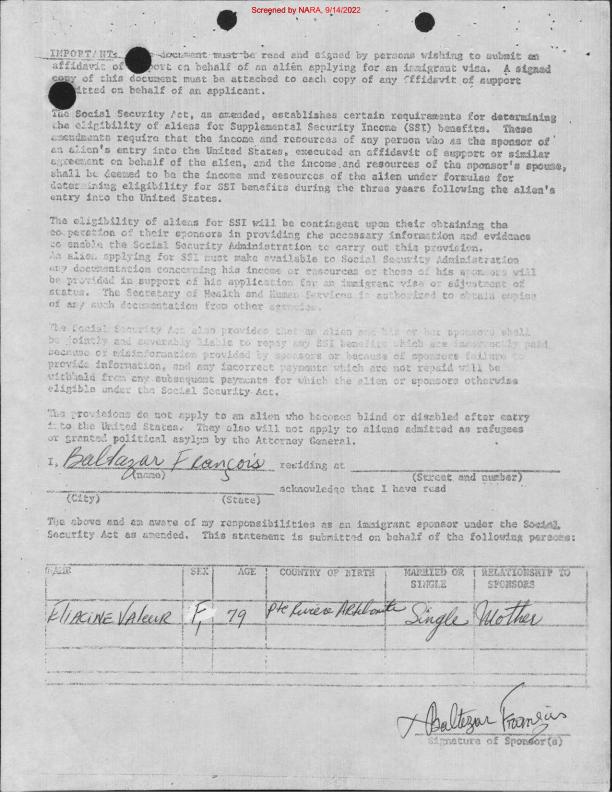 Screened by NARA, 9/14/2022
IMPORTANT: document must be read and signed by persons wishing to submit an
affidavit of on behalf of an alien applying for an immigrant visa. A signed
copy of this document must be attached to each copy of any affidavit of support
on behalf of an applicant.
The Social Security Act, as amended, establishes certain requirements for determining
the eligibility of aliens for Supplemental Security Income (SSI) benefits. These
amendments require that the income and resources of any person who as the sponsor of
an alien's entry into the United States, executed an affidavit of support or similar
agreement on behalf of the alien, and the income and resources of the sponsor's spouse,
shall be deemed to be the income and resources of the alien under formulas for
determining eligibility for SSI benefits during the three years following the alien's
entry into the United States.
The eligibility of aliens for SSI will be contingent upon their obtaining the
cooperation of their sponsors in providing the necessary information and evidence
to enable the Social Security Administration to carry out this provision.
An alien applying for SSI must make available to Social Security Administration
any documentation concerning his income or resources or those of his sponsors will
be provided in support of his application for an immigrant visa or adjustment of
status. The Secretary of Health and Human Services is authorized to obtain copies
of any such documentation from other agencies.
The Social Security Act also provides that an alien and his or her sponsors shall
be jointly and severably liable to repay any SSI benefits which are incorrectly paid
because or misinformation provided by sponsors or because of sponsors failure to
provide information, and any incorrect payments which are not repaid will be
withheld from any subsequent payments for which the alien or sponsors otherwise
eligible under the Social Security Act.
The provisions do not apply to an alien who becomes blind or disabled after entry
into the United States. They also will not apply to aliens admitted as refugees
or granted political asylum by the Attorney General.
I, Baltazar François residing at
(name) (Street and number)
acknowledge that I have read
(City) (State)
The above and am aware of my responsibilities as an immigrant sponsor under the Social
Security Act as amended. This statement is submitted on behalf of the following persons:
NAME SEX AGE COUNTRY OF BIRTH MARRIED OR SINGLE RELATIONSHIP TO SPONSORS
Eliacine Valeur F, 79 Pte Riviere Single Mother
x Baltazar François
Signature of Sponsor(s)